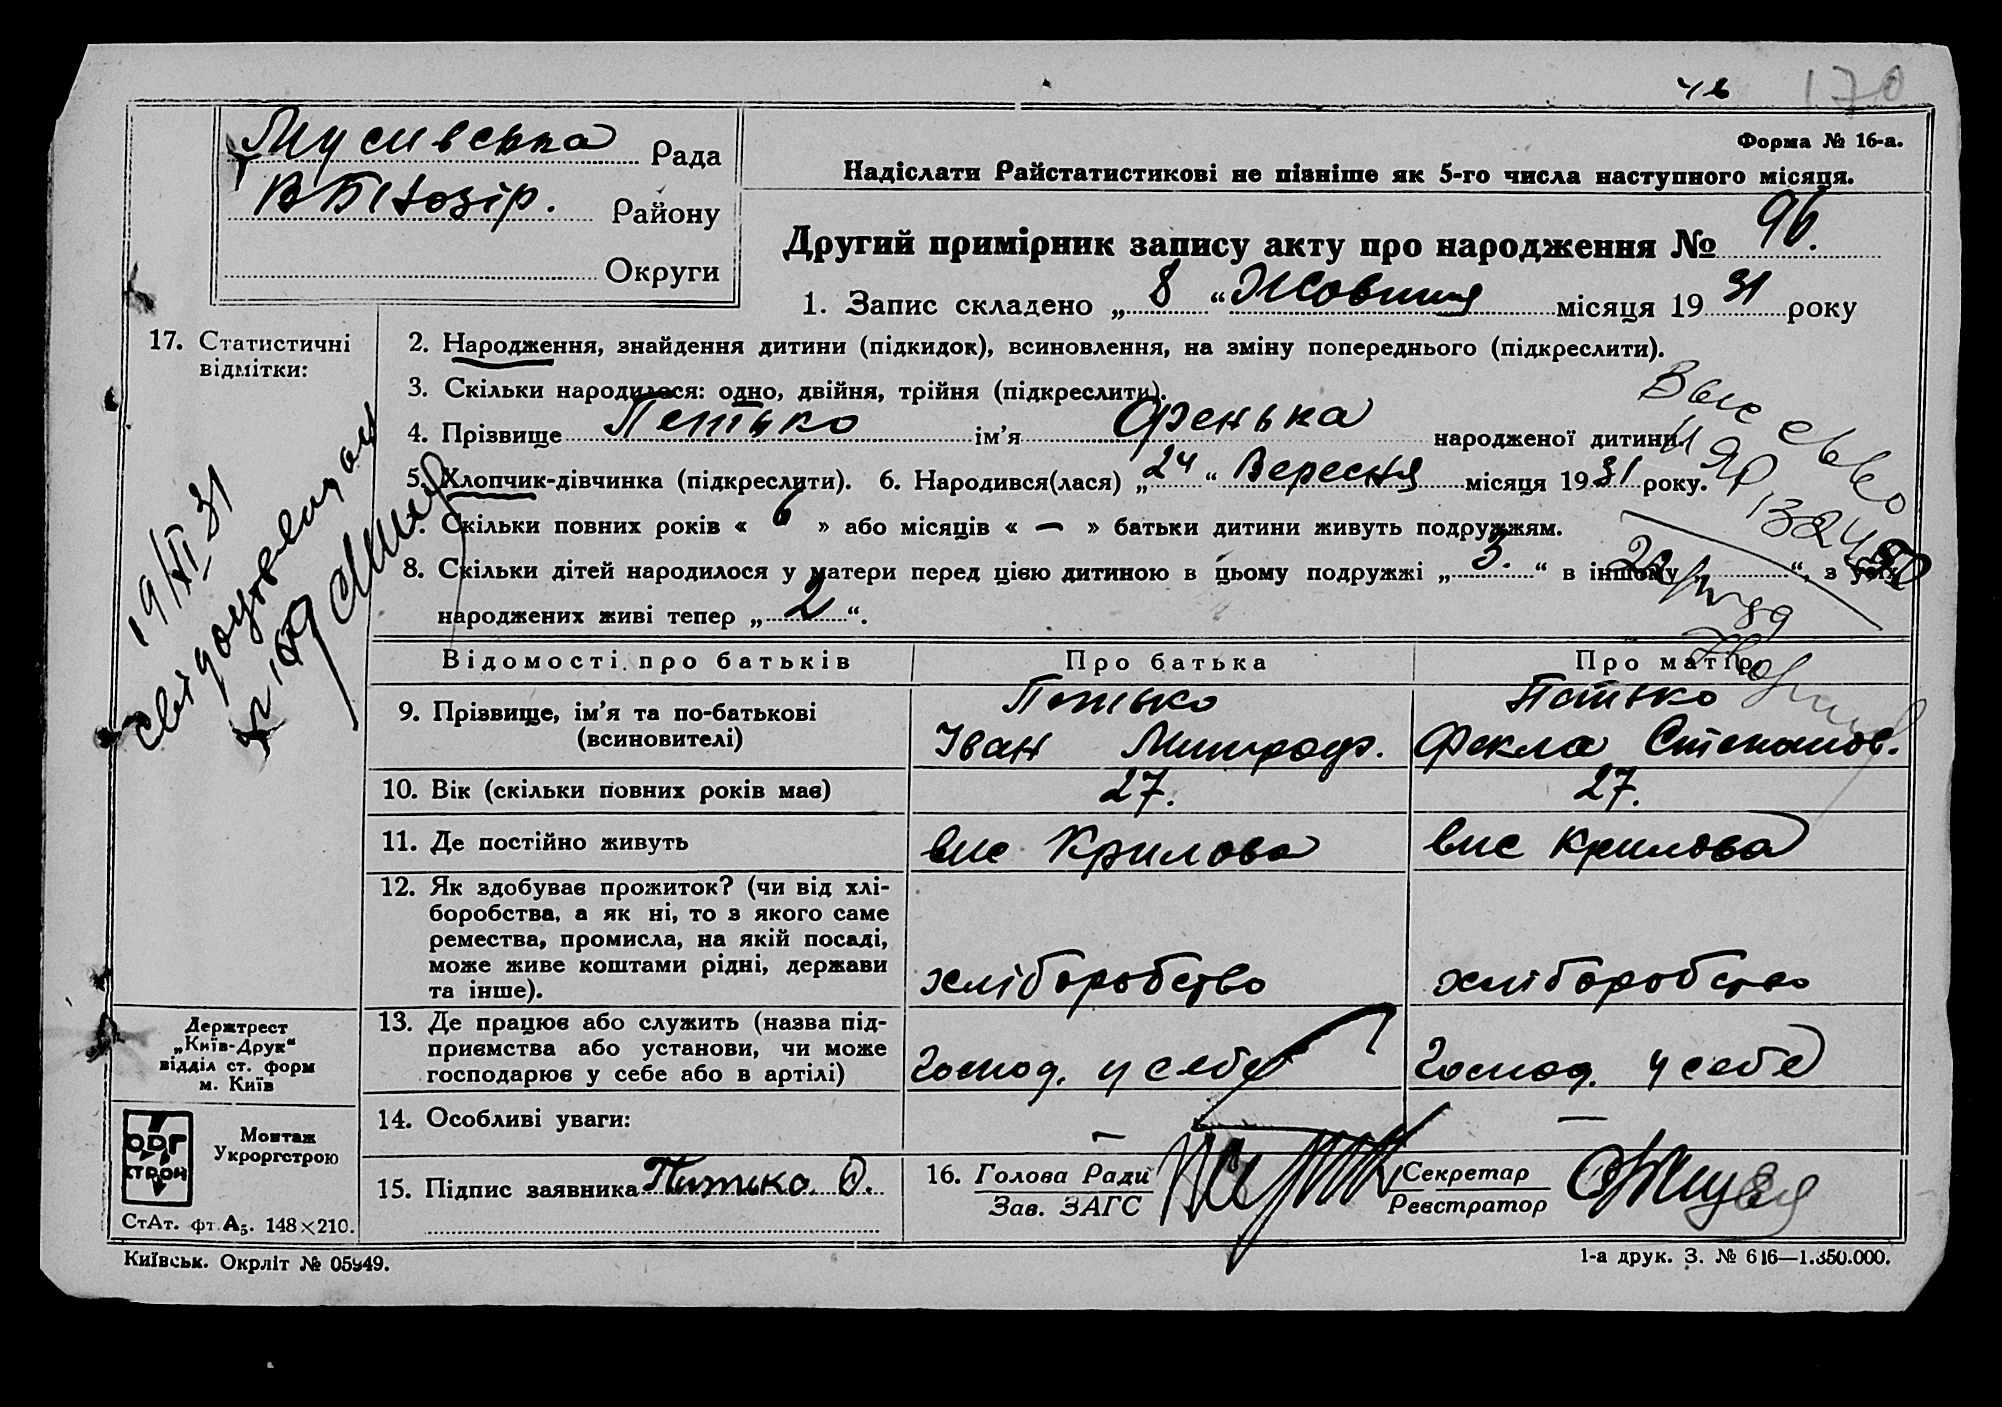 170
Мусивська Рада
Району
Округи
Форма № 16-а.
Надіслати Райстатистикові не пізніше як 5-го числа наступного місяця.
Другий примірник запису акту про народження № 96.
1. Запис складено „ 8 “ Жовтня місяця 19 31 року
17. Статистичні
відмітки:
19/XI 31
2. Народження, знайдення дитини (підкидок), всиновлення, на зміну попереднього (підкреслити).
3. Скільки народилося: одно, двійня, трійня (підкреслити).
4. Прізвище Петько ім’я Фенька народженої дитини
5. Хлопчик-дівчинка (підкреслити). 6. Народився(лася) „ 24 “ Вересня місяця 19 31 року.
7. Скільки повних років « 6 » або місяців « — » батьки дитини живуть подружжям.
8. Скільки дітей народилося у матери перед цією дитиною в цьому подружжі „ 3. “ в іншому „ “, з усіх
народжених живі тепер „ 2 “.
Відомості про батьків Про батька Про матір
9. Прізвище, ім’я та по-батькові
(всиновителі)
Петько
Іван Митроф.
Петько
Фекла Степанов.
10. Вік (скільки повних років має) 27. 27.
11. Де постійно живуть вис Крилова вис Крилова
12. Як здобуває прожиток? (чи від хлі-
боробства, а як ні, то з якого саме
ремества, промисла, на якій посаді,
може живе коштами рідні, держави
та інше).
хліборобство хліборобство
13. Де працює або служить (назва під-
приємства або установи, чи може
господарює у себе або в артілі)
Господ. у себе Господ. у себе
14. Особливі уваги: — —
15. Підпис заявника Петько О.
16. Голова Ради
Зав. ЗАГС
Секретар
Реєстратор
Держтрест
„Київ-Друк“
відділ ст. форм
м. Київ
ОРГ
СТРОЙ
Монтаж
Укроргстрою
СтАт. фт. А₅. 148×210.
Київськ. Окрліт № 05949.
1-а друк. З. № 616—1.350.000.